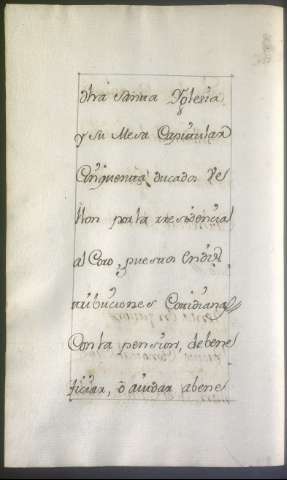 dhã santa Yglesia
y su Mesa Capitular
Cinquenta ducados Ve
llon por la residencia
al Coro, puestos en dis
tribuciones Cotidianas
Con la pension, de bene
ficiar, ò aiudar a bene